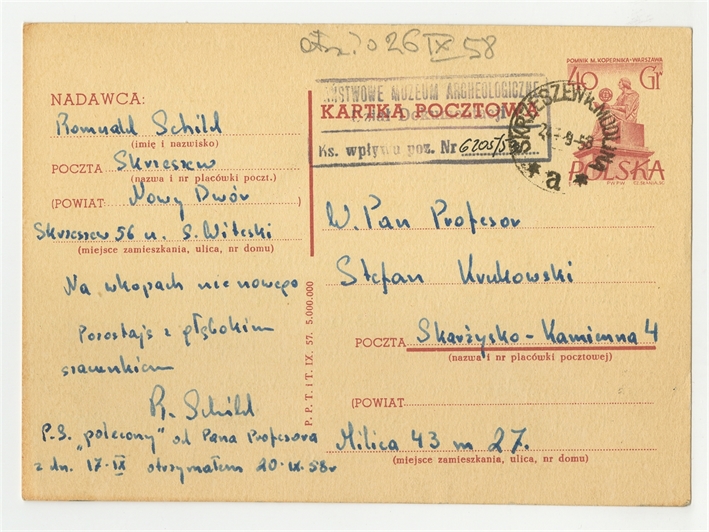 otrz. 26 IX 58
POMNIK M. KOPERNIKA • WARSZAWA
40 Gr
POLSKA
PAŃSTWOWE MUZEUM ARCHEOLOGICZNE
Ks. wpływu poz. Nr 6205/58
SKRZESZEW K/MODLINA
a
KARTKA POCZTOWA
NADAWCA:
Romuald Schild
(imię i nazwisko)
POCZTA Skrzeszew
(nazwa i nr placówki poczt.)
(POWIAT: Nowy Dwór)
Skrzeszew 56 u. S. Witeski
(miejsce zamieszkania, ulica, nr domu)
Na wkopach nic nowego
Pozostaję z głębokim
szacunkiem
R. Schild
P.S. "polecony" od Pana Profesora
z dn. 17-IX otrzymałem 20-IX-58r
P. P. T. i T. IX. 57. 5.000.000
W. Pan Profesor
Stefan Krukowski
POCZTA Skarżysko-Kamienna 4
(nazwa i nr placówki pocztowej)
(POWIAT)
Milica 43 m 27.
(miejsce zamieszkania, ulica, nr domu)